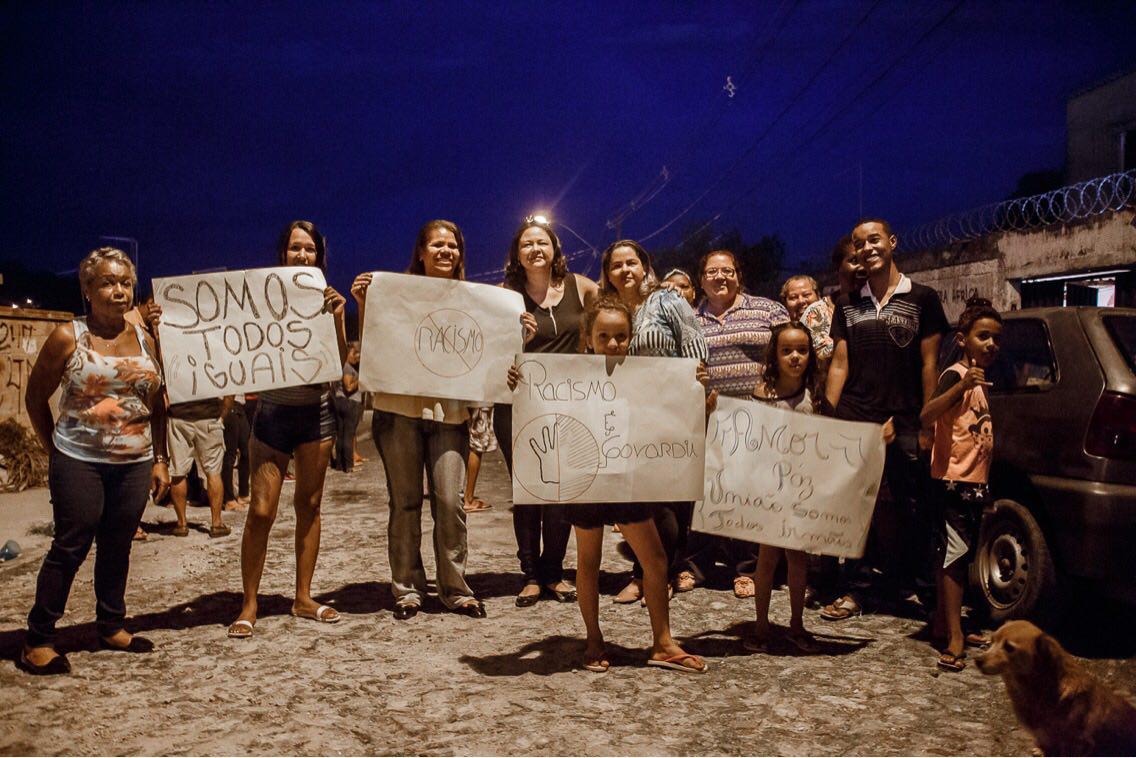 SOMOS
TODOS
iGUAIS
RACISMO
RACISMO
é
COVARDIA
AMOR
Páz
União Somos
Todos irmãos
AFRICA